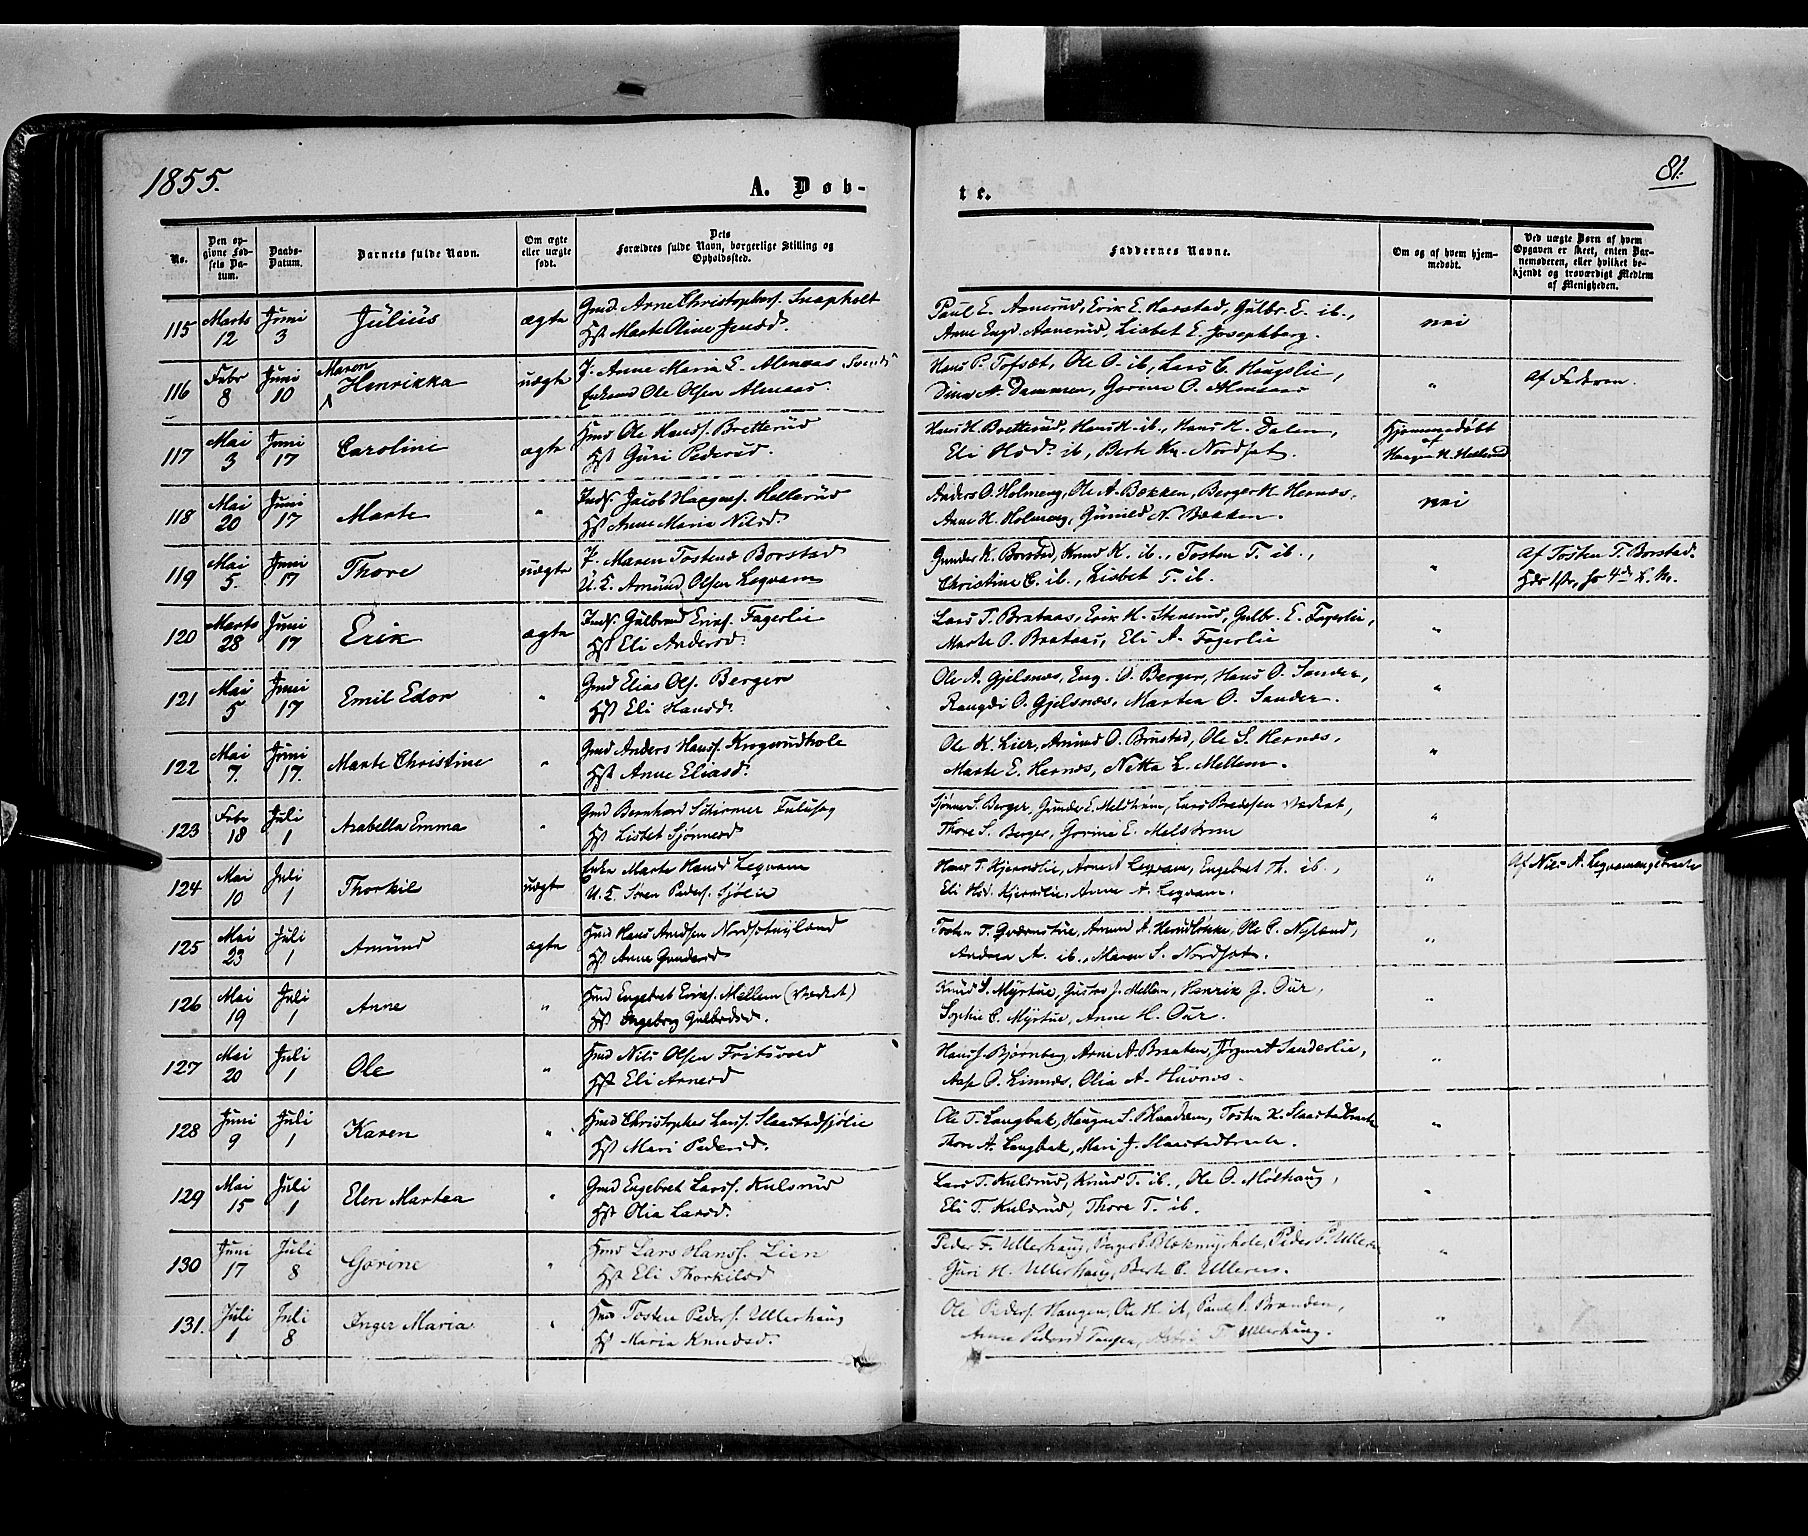 1855.
A. Døb-
te.
81.
No.
Den op-
givne Fød-
sels Da-
tum.
Daabs-
Datum.
Barnets fulde Navn.
Om ægte
eller uægte
født.
Dets
Forældres fulde Navn, borgerlige Stilling og
Opholdssted.
Faddernes Navne.
Om og af hvem hjem-
medøbt.
Ved uægte Børn af hvem
Opgaven er skeet, enten Bar-
nemoderen, eller hvilket be-
kjendt og troværdigt Medlem
af Menigheden.
115 Marts 12 Juni 3 Julius ægte Gmd Arne Christophers. Snapholt
Hst Marte Oline Jensd.
Paul E. Asnerud, Erik E. Harstad, Gulbr. E. ib.,
Anne Engd. Asnerud, Lisbet E. Josephberg.
nei
116 Febr 8 Juni 10 Maren Henrikka uægte P. Anne Maria E. Almaas
Enkemd Ole Olsen Almaas.
Hans P. Tofsæt, Ole O. ib., Lars C. Haugslie,
Dina A. Dammen, Gorine O. Almaas
"
Af Faderen.
117 Mai 3 Juni 17 Caroline ægte Hmd Ole Hanss. Bretterud
Hst Guri Pedersd.
Hans H. Bretterud, Hans H. ib., Hans H. Dalen,
Eli Hsd. ib, Berte Kn. Nordset.
Hjemmedøbt
af
Haagen H. Hellerud
118 Mai 20 Juni 17 Marte " Inds. Jacob Haagens. Hellerud
Hst Anne Maria Nilsd.
Anders O. Holmeng, Ole A. Bækken, Berger H. Hernæs,
Anne H. Holmeng, Gunild N. Bækken.
nei
119 Mai 5. Juni 17 Thore uægte P. Maren Tostensd Borstad
U. K. Amund Olsen Legvam
Gunder K. Borstad, Knud K. ib., Tosten T. ib.,
Christine C. ib., Lisbet T. ib.
"
Af Tosten T. Borstad.
120 Marts 28 Juni 17 Erik ægte Inds. Gulbrand Eriks. Fagerlie
Hst Eli Andersd.
Lars T. Brataas, Erik H. Stenerud, Gulbr. E. Fagerlie,
Marte O. Brataas, Eli A. Fagerlie
"
121 Mai 5 Juni 17 Emil Edor " Gmd Elias Ols. Berger
Hst Eli Hansd.
Ole A. Gjelsnes, Eng. O. Berger, Hans O. Sander,
Rangdi O. Gjelsnæs, Martea O. Sander.
"
122 Mai 7. Juni 17. Marte Christine " Gmd Anders Hanss. Krogsrudhole
Hst Anne Eliasd.
Ole K. Lier, Amund O. Brustad, Ole S. Hernæs,
Marte E. Hernæs, Netta L. Mellem.
"
123 Febr 18 Juli 1 Arabella Emma " Gmd Bernhard Schirmer Fulusag
Hst Lisbet Sjønnesd
Sjønne S. Berger, Gunder E. Melstrøm, Lars Bredesen Vædset,
Thore S. Berger, Gorine E. Melstrøm
"
124 Mai 10 Juli 1 Thorkil uægte Enken Marte Hansd Legvam
U. K. Søren Peders. Sjølie
Hans T. Kjernslie, Arne A Legvam, Engebret Th. ib.,
Eli Hsd. Kjernslie, Anne A. Legvam.
"
Af Nils A. Legvamengebraate
125 Mai 23 Juli 1 Amund ægte Hmd Hans Amdsen Nordsetnyland
Hst Anne Gundersd
Tosten T. Qværnstue, Amund A. Herudløkke, Ole C. Nyland,
Andrea A. ib., Maren S. Nordset.
"
126 Mai 19 Juli 1 Anne " Hmd Engebret Eriks. Mellem (Vædset)
Hst Ingeborg Gulbrdsd.
Knud S. Myrtue, Gustav J. Mellem, Henrik J. Our,
Sophie C. Myrtue, Anne H. Our.
"
127 Mai 20 Juli 1 Ole " Hmd Nils Olsen Foitsroed
Hst Eli Arnesd
Hans J. Bjørnberg, Arne A. Braaten, Jørgen A Sanderlie,
Aase O. Linnæs, Olia A. Huunæs.
"
128 Juni 9 Juli 1 Karen " Hmd Christopher Larss. Slaastadsjølie
Hst Mari Pedersd.
Ole T. Langbak, Haagen S. Blaadsen, Tosten K. Slaastadbraate
Thore A. Langbak, Mari J. Slaastadbraate.
"
129 Mai 15 Juli 1 Elen Martea " Gmd Engebret Larss. Kulsrud
Hst Olia Larsd.
Lars T. Kulsrud, Knud T. ib., Ole O. Molhaug,
Eli T. Kulsrud, Thore T. ib.
"
130 Juni 17 Juli 8 Gorine " Hmd Lars Hanss. Lien
Hst Eli Thorkilsd
Peder F. Ullerhaug, Berger P. Blækmyrhole, Peder P. Ulleren
Guri H. Ullerhaug, Berte C. Ulleren.
"
131. Juli 1 Juli 8 Inger Maria " Hmd Tosten Peders. Ullerhaug
Hst Maria Knudsd.
Ole Peders. Haugen, Ole H. ib, Paul P. Branden,
Anne Pedersd Tangen, T. Ullerhaug.
"